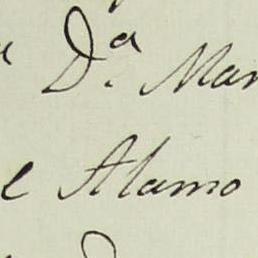 a Dª. Mar
e Alamo